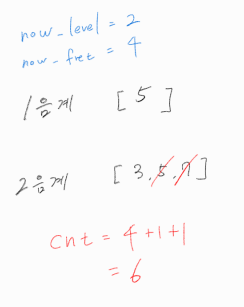 now_level = 2
now_fret = 4
1음계 [ 5 ]
2음계 [ 3, 5, 7 ]
cnt = 4 +1 +1
= 6